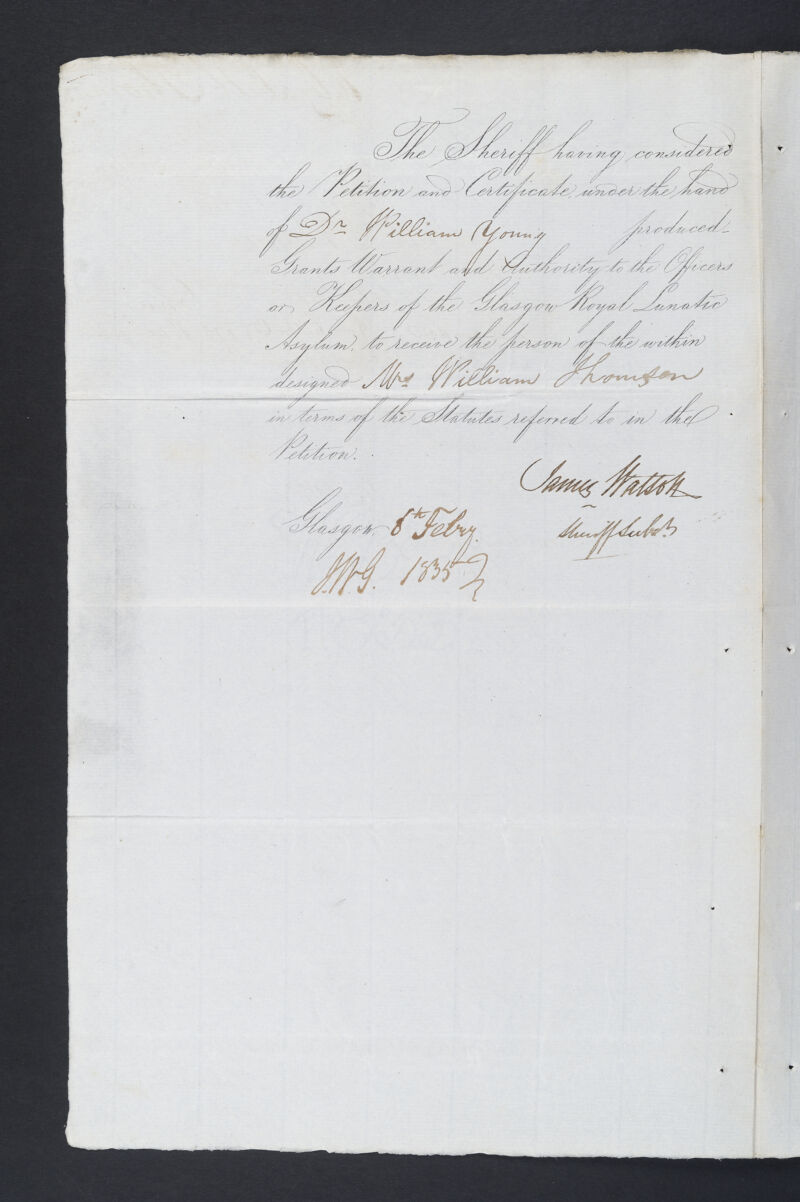 The Sheriff having considered
the Petition and Certificate under the hand
of Dr. William Young produced
Grants Warrant and Authority to the Officers
or Keepers of the Glasgow Royal Lunatic
Asylum, to receive the person of the within
designed Mrs William Thomson
in terms of the Statutes referred to in the
Petition.
James Watson
Sheriff Subst.
Glasgow 8th Febry.
1835